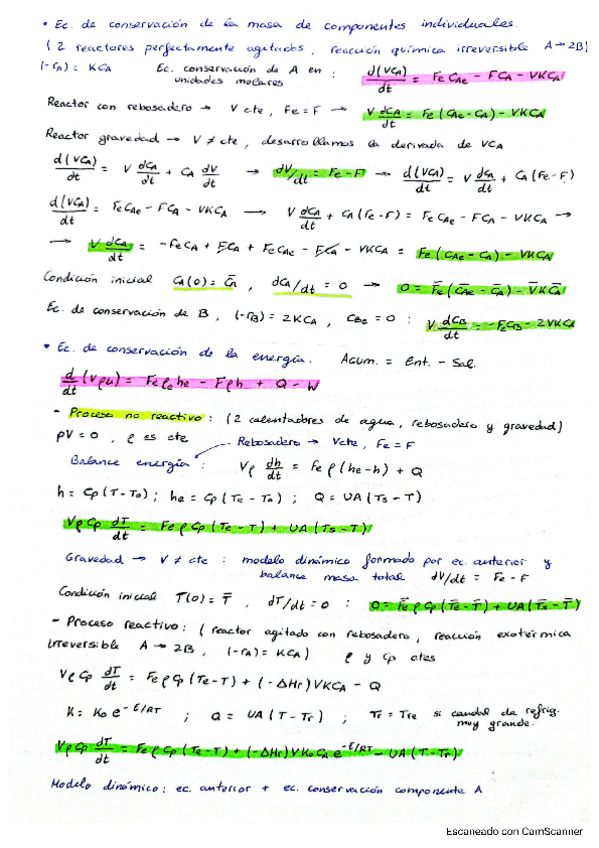 • Ec. de conservación de la masa de componentes individuales.
(2 reactores perfectamente agitados, reacción química irreversible A → 2B)
(-rA) = KCA Ec. conservación de A en unidades molares : d(VCA)/dt = FeCAe - FCA - VKCA
Reactor con rebosadero → V cte, Fe = F → V dCA/dt = Fe(CAe - CA) - VKCA
Reactor gravedad → V ≠ cte, desarrollamos la derivada de VCA
d(VCA)/dt = V dCA/dt + CA dV/dt → dV/dt = Fe - F → d(VCA)/dt = V dCA/dt + CA(Fe - F)
d(VCA)/dt = FeCAe - FCA - VKCA → V dCA/dt + CA(Fe - F) = FeCAe - FCA - VKCA →
→ V dCA/dt = -FeCA + FCA + FeCAe - FCA - VKCA = Fe(CAe - CA) - VKCA
Condición inicial CA(0) = C̄A, dCA/dt = 0 → 0 = F̄e(C̄Ae - C̄A) - V̄KC̄A
Ec. de conservación de B, (-rB) = 2KCA, CBe = 0 : V dCB/dt = -FeCB - 2VKCA
• Ec. de conservación de la energía. Acum. = Ent. - Sal.
d/dt (Vρu) = Feρehe - Fρh + Q - W
- Proceso no reactivo: (2 calentadores de agua, rebosadero y gravedad)
pV = 0, ρ es cte Rebosadero → Vcte, Fe = F
Balance energía : Vρ dh/dt = Feρ(he - h) + Q
h = Cp(T - To); he = Cp(Te - To); Q = UA(Ts - T)
VρCp dT/dt = FeρCp(Te - T) + UA(Ts - T)
Gravedad → V ≠ cte : modelo dinámico formado por ec. anterior y
balance masa total dV/dt = Fe - F
Condición inicial T(0) = T̄, dT/dt = 0 : 0 = F̄eρCp(T̄e - T̄) + UA(T̄s - T̄)
- Proceso reactivo: (reactor agitado con rebosadero, reacción exotérmica
irreversible A → 2B, (-rA) = KCA) ρ y Cp ctes
VρCp dT/dt = FeρCp(Te - T) + (-ΔHr)VKCA - Q
K = Ko e^-E/RT ; Q = UA(T - Tr) ; Tr = Tre si caudal de refrig. muy grande.
VρCp dT/dt = FeρCp(Te - T) + (-ΔHr)VKoCAe^-E/RT - UA(T - Tr)
Modelo dinámico: ec. anterior + ec. conservación componente A
Escaneado con CamScanner